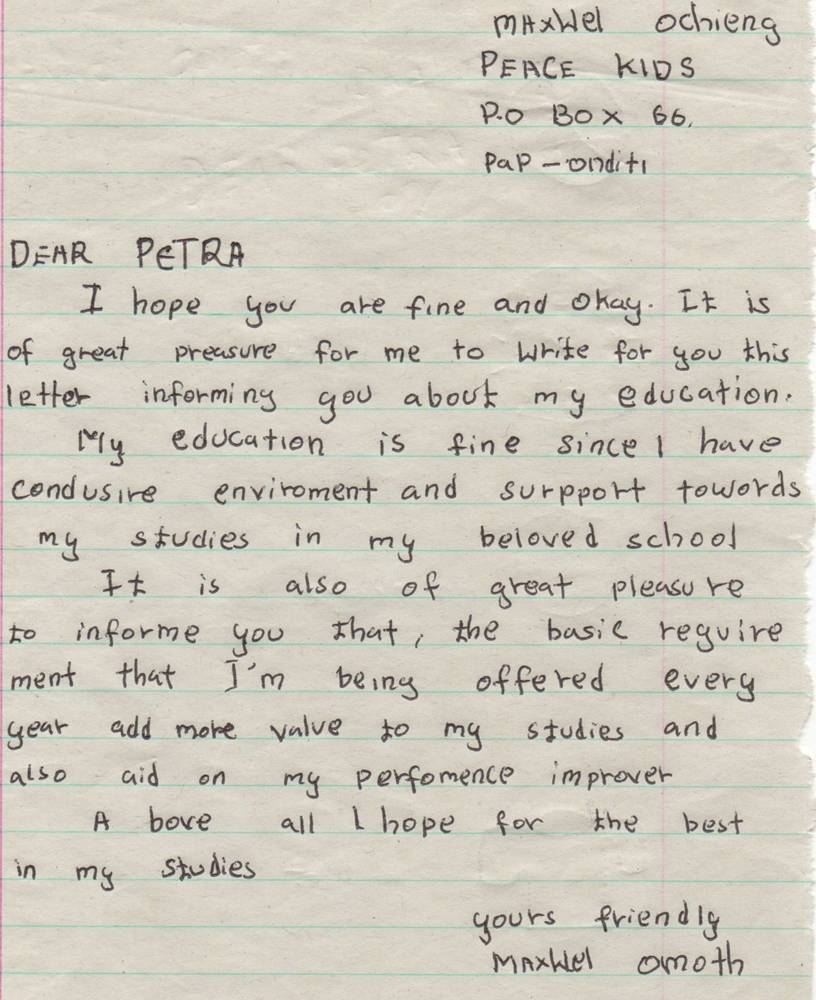 MAXWEl Ochieng
PEACE KIDS
P.O BOX 66.
PaP - Onditi
DEAR PETRA
I hope you are fine and Okay. It is
of great preasure for me to Write for you this
letter informing you about my education.
My education is fine since I have
condusire enviroment and surpport towords
my studies in my beloved school
It is also of great pleasure
to informe you that, the basic require
ment that I'm being offered every
year add more value to my studies and
also aid on my perfomence improver
A bove all I hope for the best
in my studies
yours friendly
MAXWEl Omoth